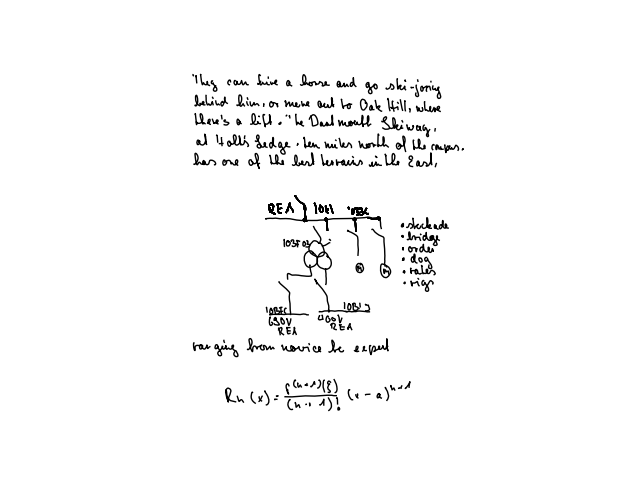 They can hire a horse and go ski-joring
behind him, or move out to Oak Hill, where
there's a lift. The Dartmouth Skiway,
at Holt's Ledge, ten miles north of the campus,
has one of the best terrains in the East,
REA 10E1
10BF02
• stockade
• bridge
• order
• dog
• rates
• rigs
M M
690V 400V
REA REA
ranging from novice to expert
Rn(x) = f^(n+1)(ξ) / (n+1)! (x-a)^n+1